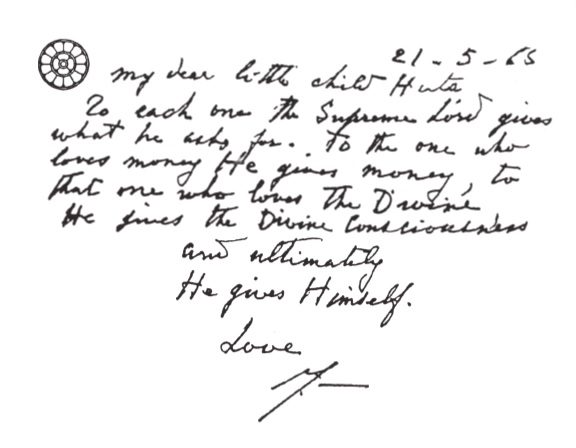 21-5-65
my dear little child Huta
To each one the Supreme Lord gives
what he asks for. To the one who
loves money He gives money, to
that one who loves the Divine
He gives the Divine Consciousness
and ultimately
He gives Himself.
Love